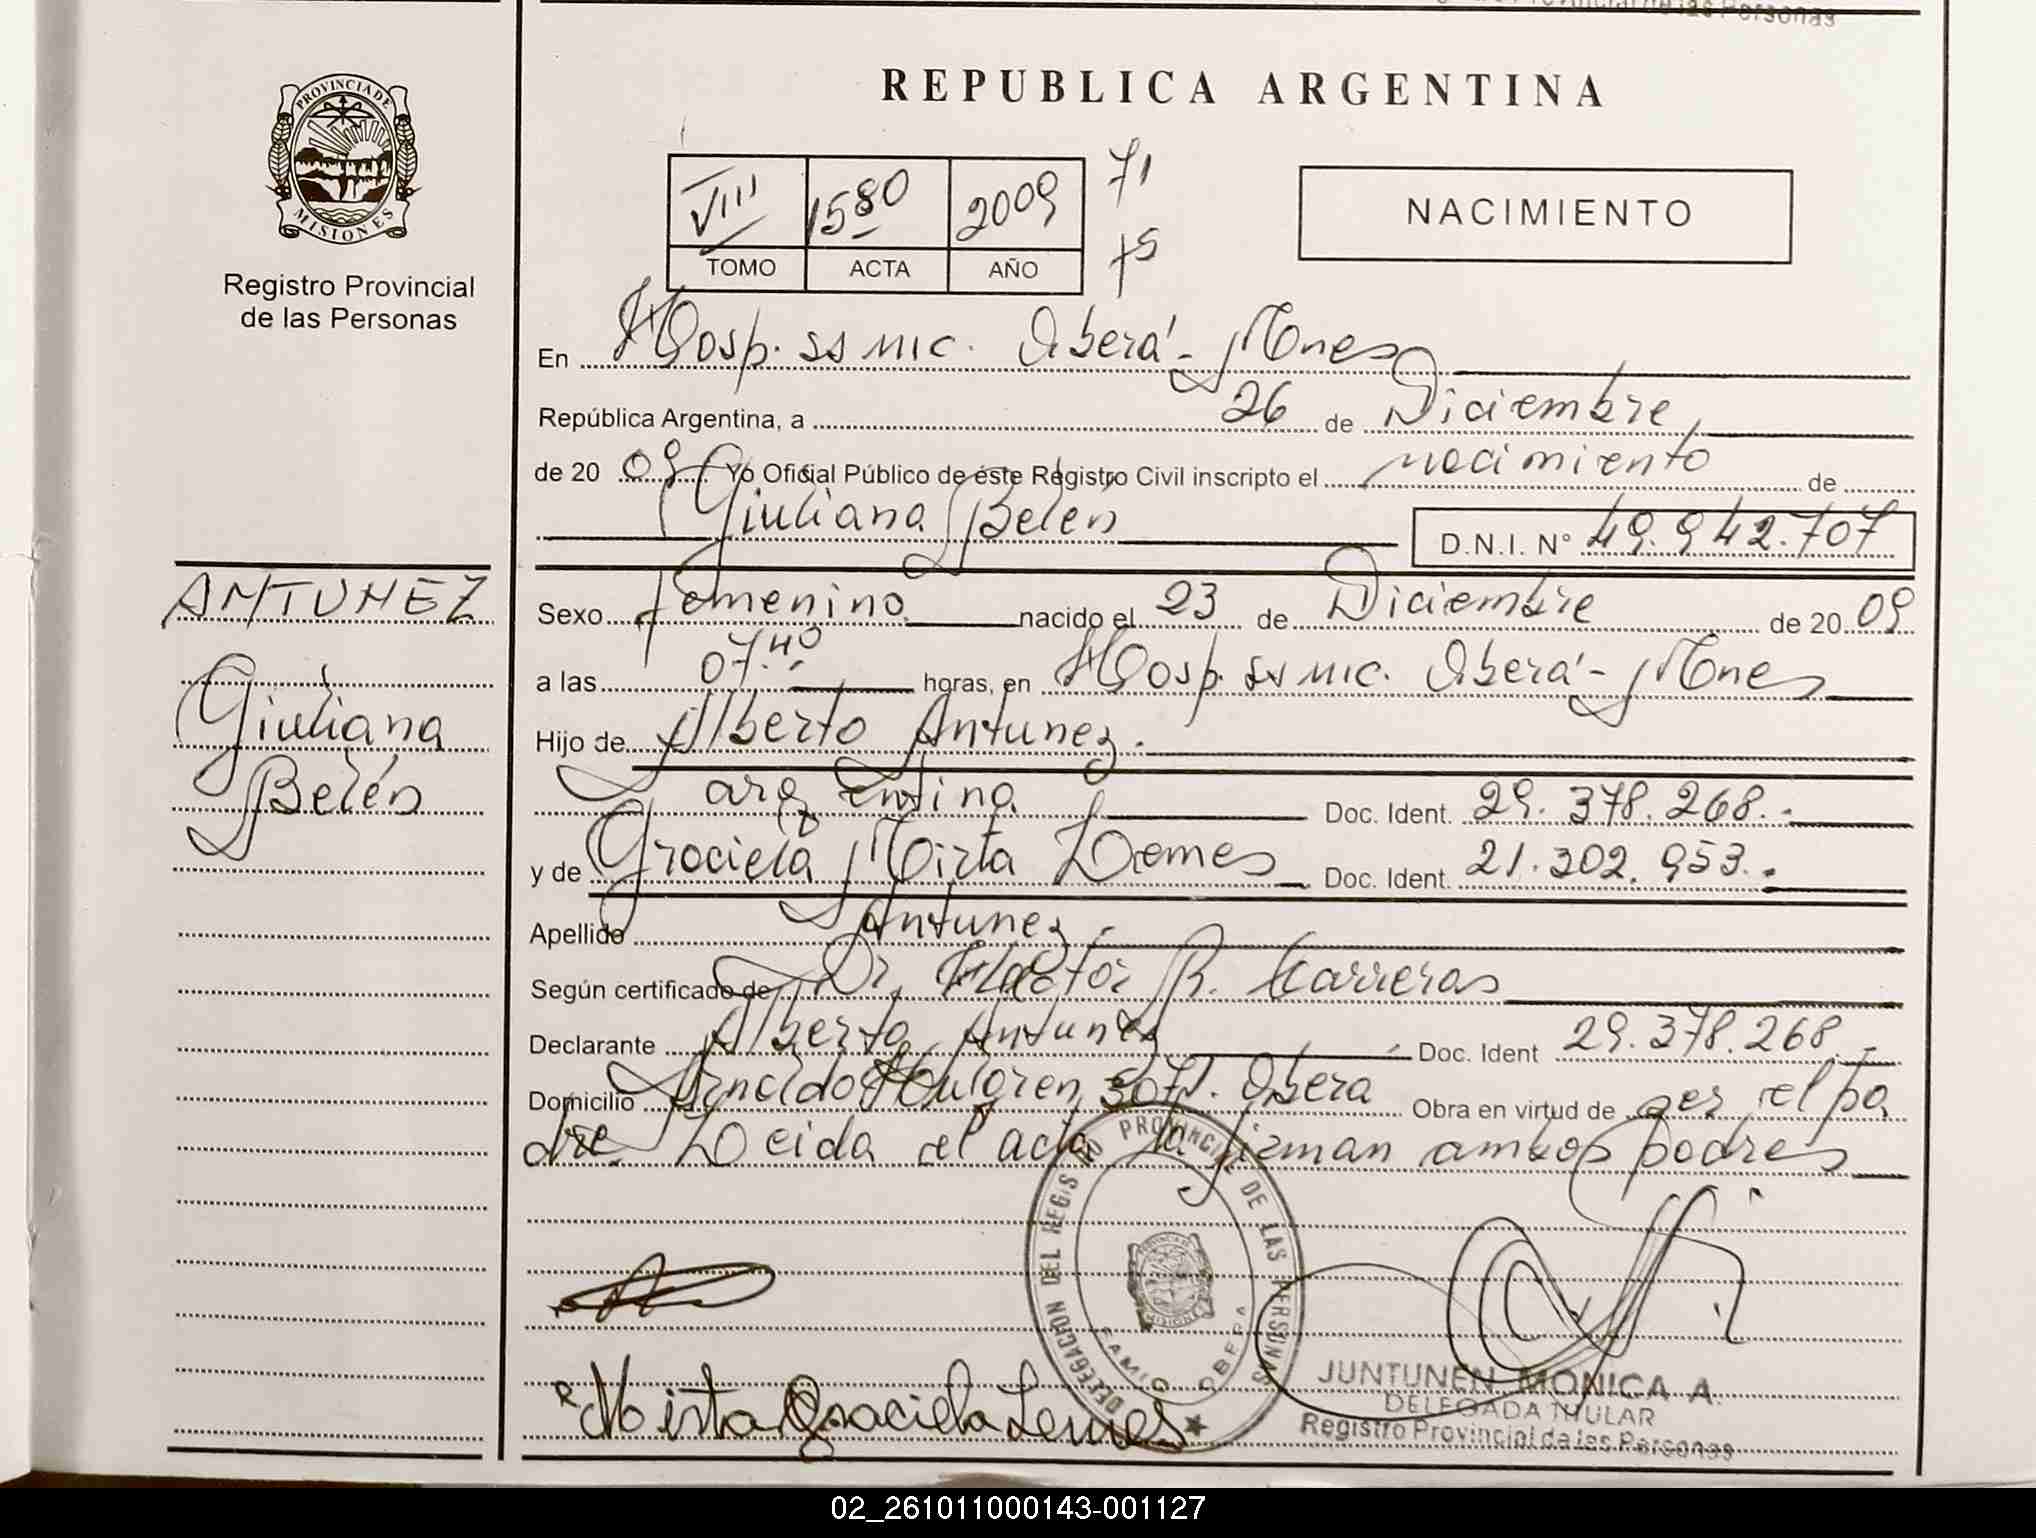 REPUBLICA ARGENTINA
PROVINCIA DE
MISIONES
Registro Provincial
de las Personas
VIII 1580 2009
TOMO ACTA AÑO
71
75
NACIMIENTO
En Hosp. ss mic. Oberá - Mnes
República Argentina, a 26 de Diciembre
de 20 09 Yo Oficial Público de éste Registro Civil inscripto el nacimiento de
Giuliana Belén D.N.I. N° 49.942.707
ANTUNEZ
Giuliana
Belén
Sexo femenino nacido el 23 de Diciembre de 20 09
a las 07.40 horas, en Hosp. ss mic. Oberá - Mnes
Hijo de Alberto Antunez.
argentina Doc. Ident. 29.378.268.-
y de Graciela Mirta Lemes Doc. Ident. 21.302.953.-
Apellido Antunez.-
Según certificado de Dr. Hector R. Carreras
Declarante Alberto Antunez Doc. Ident 29.378.268.-
Domicilio Arnoldo Hulgren 3071. Obera Obra en virtud de ser el pa
dre. Leida el acta la firman ambos padres
DELEGACION DEL REGISTRO PROVINCIAL DE LAS PERSONAS
PROVINCIA DE
MISIONES
OBERA
Mirta Graciela Lemes
JUNTUNEN MONICA A.
DELEGADA TITULAR
Registro Provincial de las Personas
02_261011000143-001127